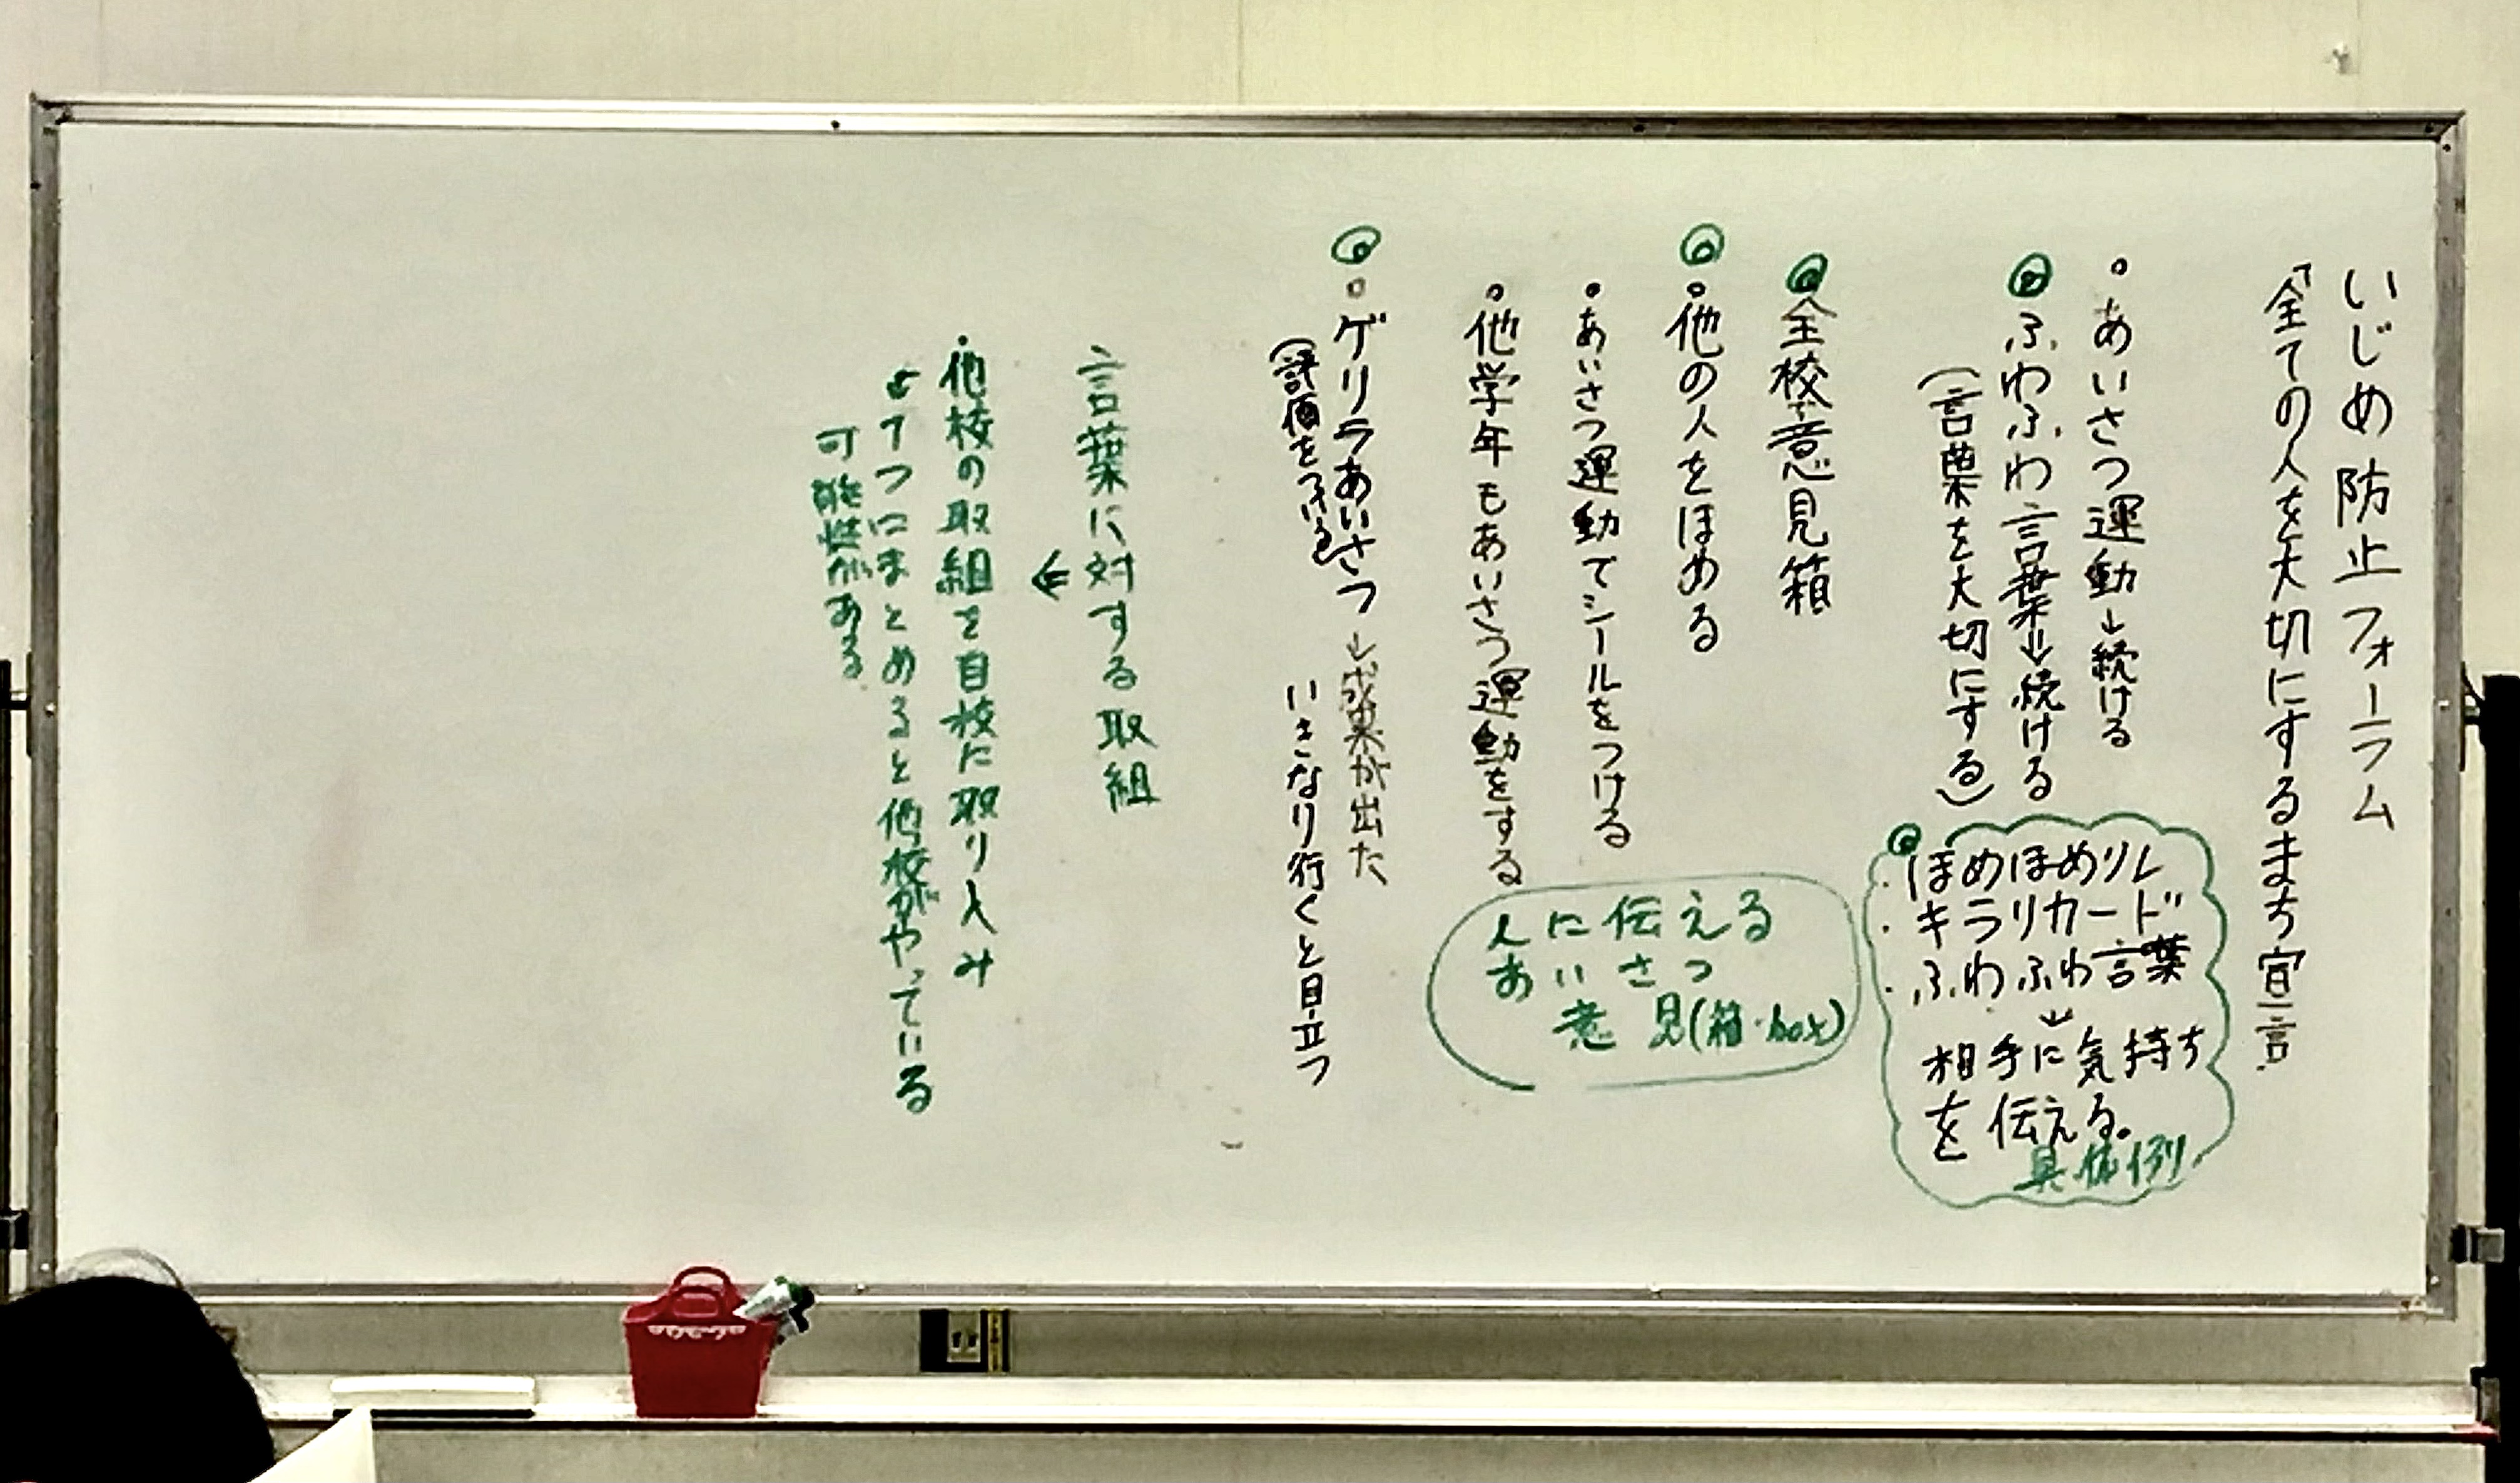 いじめ防止フォーラム
「全ての人を大切にするまち宣言
・あいさつ運動→続ける
ふわふわ言葉→続ける
(言葉を大切にする)
・ほめほめリレ
・キラリカード
・ふわふわ言葉
↓
相手に気持ち
を伝える。
具体例
全校意見箱
・他の人をほめる
・あいさつ運動でシールをつける
・他学年もあいさつ運動をする
人に伝える
あいさつ
意見(箱・box)
・ゲリラあいさつ→成果が出た
いきなり行くと目立つ
言葉に対する取組
⇐
・他校の取組を自校に取り入み
1つにまとめると他校がやっている
可能性がある